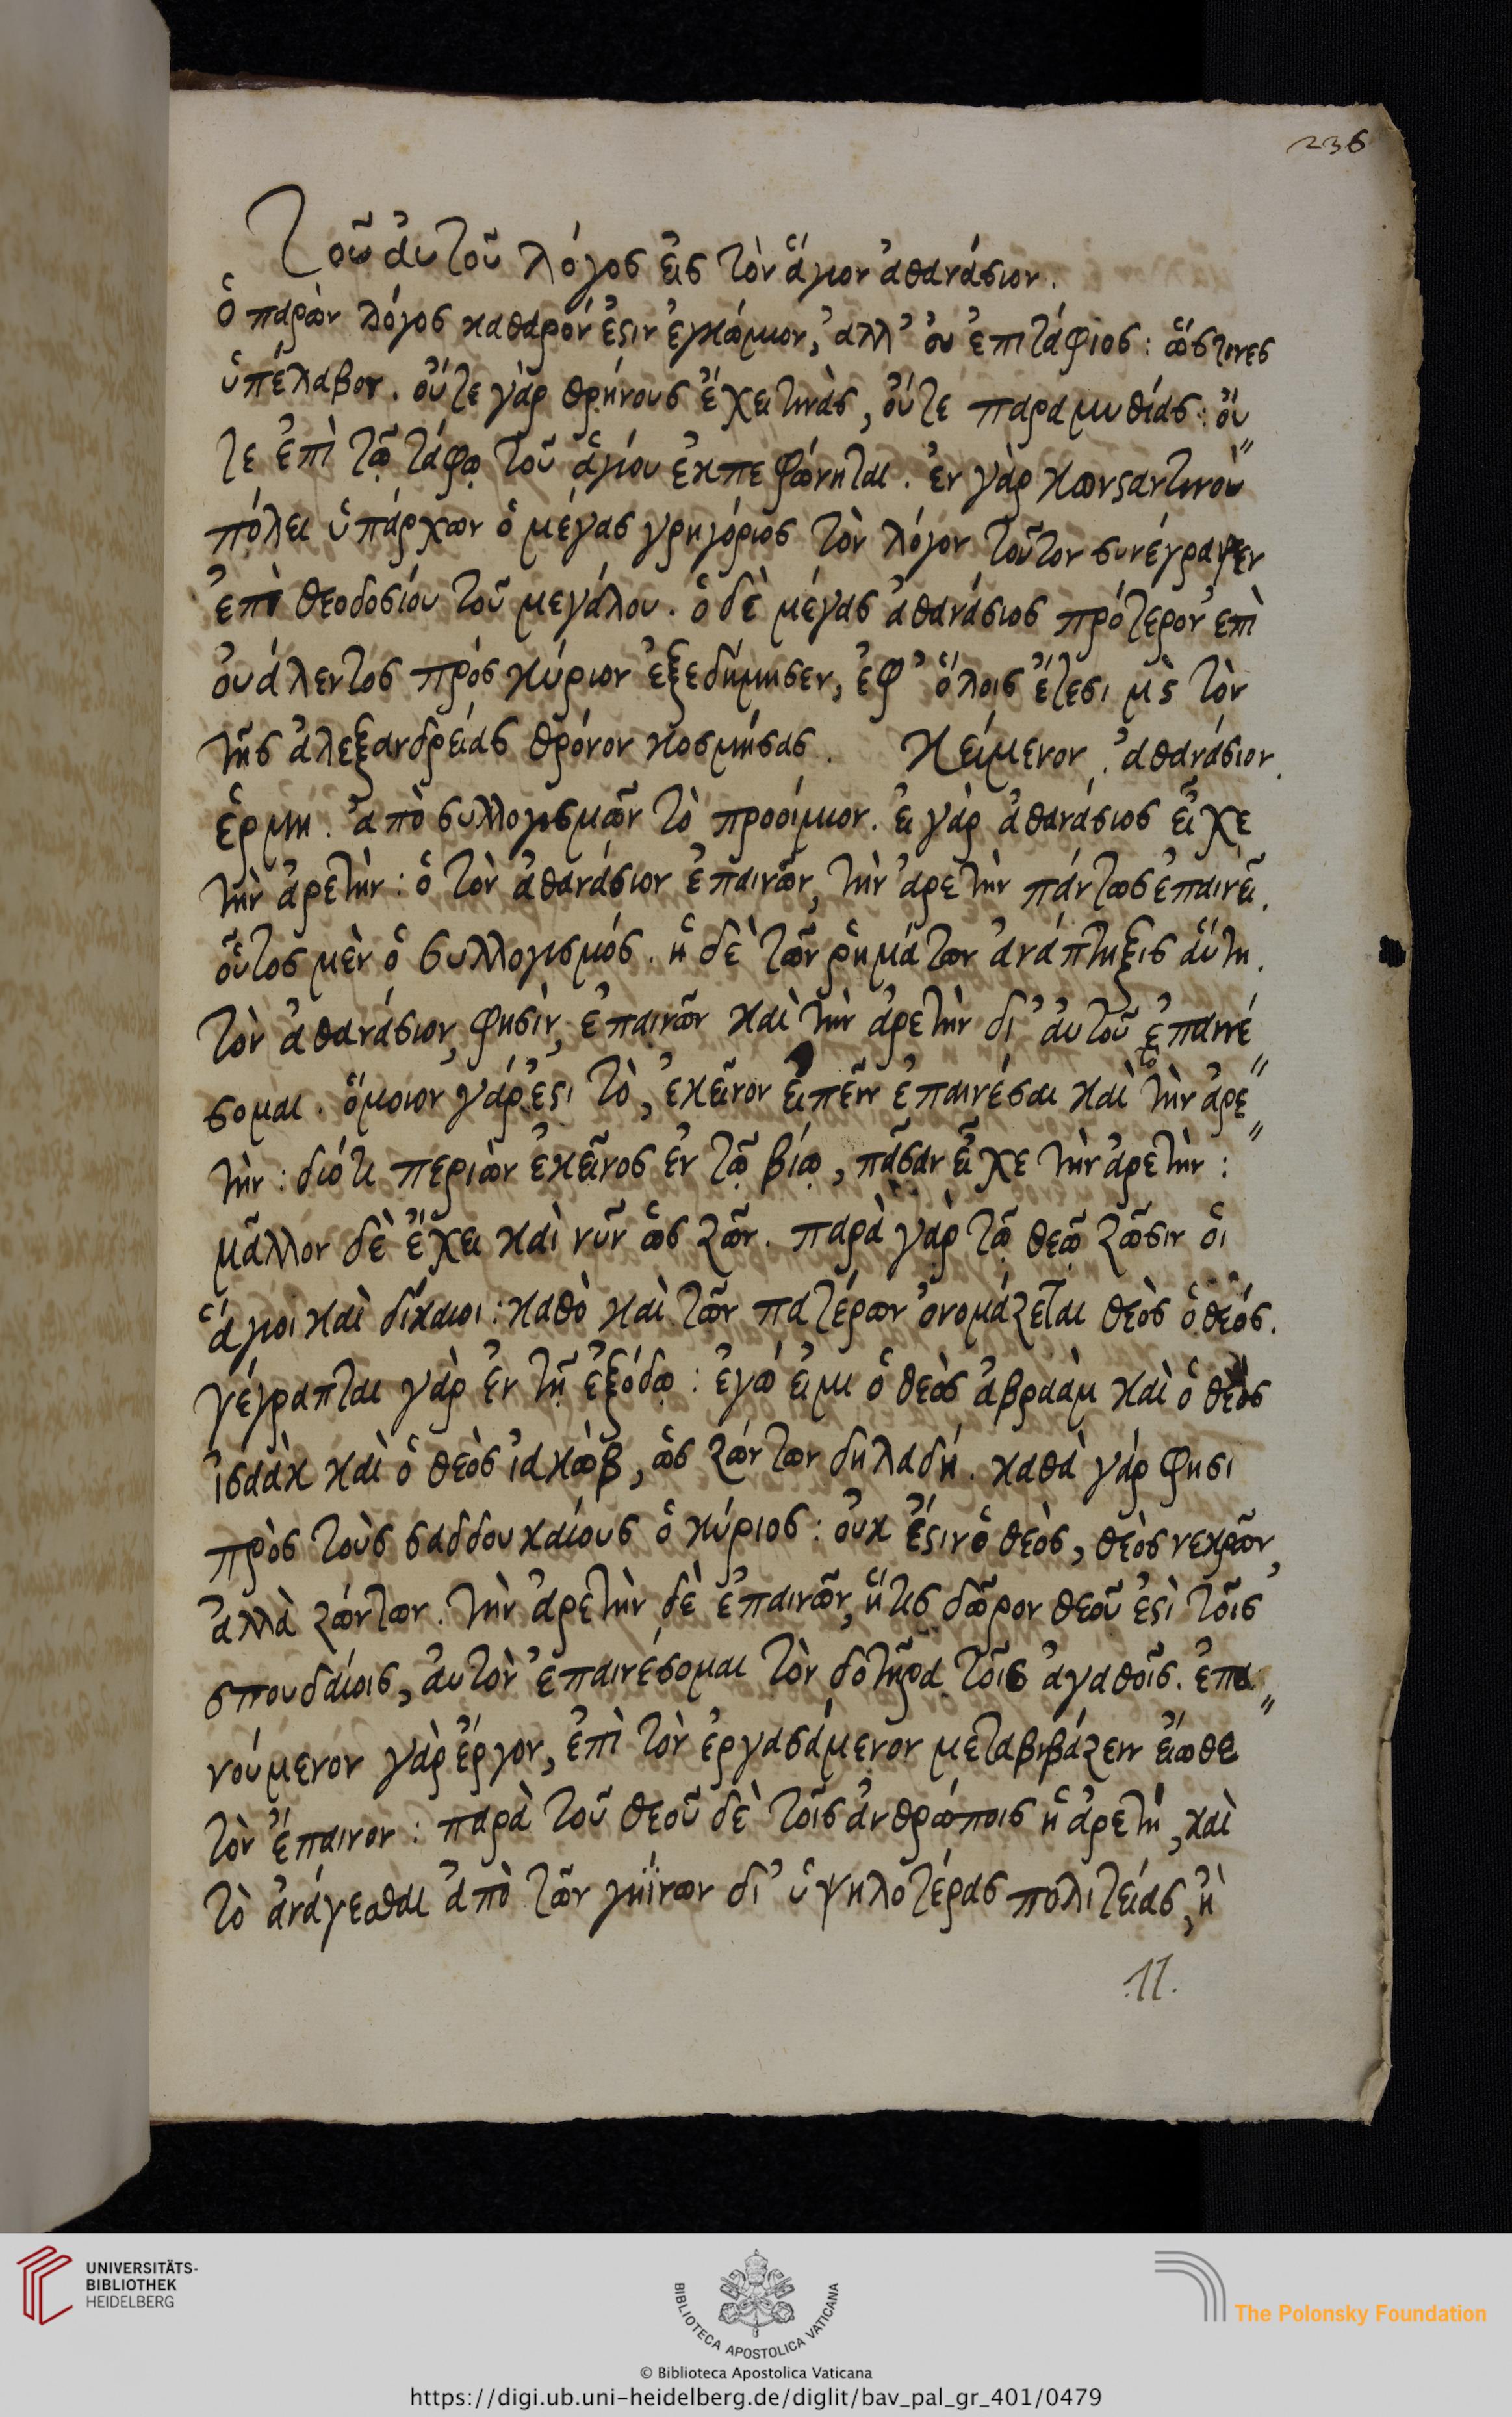 236
Τοῦ ἀυτοῦ λόγος ἐις τὸν ἅγιον ἀθανάσιον.
ὁ παρὼν λόγος καθαρόν ἐϛιν ἐγκώμιον, ἀλλ' ὀυ ἐπιτάφιος: ὥς τινες
ὑπέλαβον. ὄυτε γὰρ θρήνους ἔχει τινὰς, ὄυτε παραμυθίας: ὄυ
τε ἐπὶ τῷ τάφῳ τοῦ ἁγίου ἐκπεφώνηται. ἐν γὰρ κωνϛαντινου
πόλει ὑπάρχων ὁ μέγας γρηγόριος τὸν λόγον τοῦτον συνέγραψεν
ἐπὶ θεοδοσίου τοῦ μεγάλου. ὁ δὲ μέγας ἀθανάσιος πρότερον ἐπὶ
ὀυάλεντος πρὸς κύριον ἐξεδήμησεν, ἐφ' ὅλοις ἔτεσι μϛ τὸν
τῆς ἀλεξανδρείας θρόνον κοσμήσας. Κείμενον. ἀθανάσιον.
ἑρμη. ἀπὸ συλλογισμῶν τὸ προοίμιον. ἐι γὰρ ἀθανάσιος ἐῖχε
τὴν ἀρετὴν: ὁ τὸν ἀθανάσιον ἐπαινῶν, τὴν ἀρετὴν πάντως ἐπαινεῖ.
ὃυτος μὲν ὁ συλλογισμός. ἡ δὲ τῶν ῥημάτων ἀνάπτυξις ἅυτη.
τὸν ἀθανάσιον, φησὶν, ἐπαινῶν καὶ τὴν ἀρετὴν δι' ἀυτοῦ ἐπαινέ
σομαι. ὅμοιον γάρ ἐϛι τὸ, ἐκεῖνον ἐιπεῖν ἐπαινέσαι καὶ τὴν ἀρε
τὴν: διότι περιὼν ἐκεῖνος ἐν τῷ βίῳ, πᾶσαν ἐῖχε τὴν ἀρετὴν:
μᾶλλον δὲ ἔχει καὶ νῦν ὡς ζῶν. παρὰ γὰρ τῷ θεῷ ζῶσιν ὁι
ἅγιοι καὶ δίκαιοι: καθὸ καὶ τῶν πατέρων ὀνομάζεται θεὸς ὁ θεός.
γέγραπται γὰρ ἐν τῇ ἐξόδῳ: ἐγώ ἐιμι ὁ θεὸς ἀβραὰμ καὶ ὁ θεὸς
ἰσαὰκ καὶ ὁ θεὸς ἰακὼβ, ὡς ζώντων δηλαδή. καθὰ γάρ φησι
πρὸς τοὺς σαδδουκαίους ὁ κύριος: ὀυκ ἔϛιν ὁ θεὸς, θεὸς νεκρῶν,
ἀλλὰ ζώντων. τὴν ἀρετὴν δὲ ἐπαινῶν, ἥτις δῶρον θεοῦ ἐϛὶ τοῖς
σπουδαίοις, ἀυτὸν ἐπαινέσομαι τὸν δοτῆρα τοῖς ἀγαθοῖς. ἐπαι
νούμενον γὰρ ἔργον, ἐπὶ τὸν ἐργασάμενον μεταβιβάζειν ἔιωθε
τὸν ἔπαινον: παρὰ τοῦ θεοῦ δὲ τοῖς ἀνθρώποις ἡ ἀρετὴ, καὶ
τὸ ἀνάγεσθαι ἀπὸ τῶν γηίνων δι' ὑψηλοτέρας πολιτείας, ἢ
.11.
UNIVERSITÄTS-
BIBLIOTHEK
HEIDELBERG
BIBLIOTECA APOSTOLICA VATICANA
The Polonsky Foundation
© Biblioteca Apostolica Vaticana
https://digi.ub.uni-heidelberg.de/diglit/bav_pal_gr_401/0479